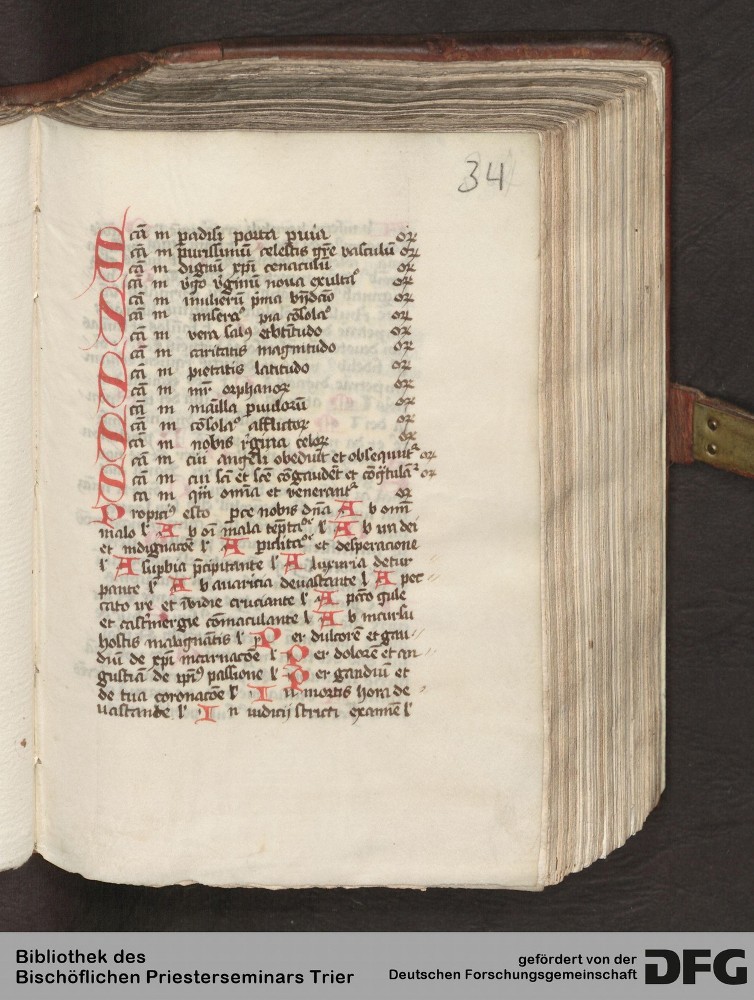 34
Scā m padisi porta puia or̄
scā m purissimū celestis gr̄e vasculū or̄
scā m dignū xp̄i cenaculū or̄
scā m v̄go v̄ginū noua exultaᵒ or̄
scā m mulierū p̄ma bn̄dcāo or̄
scā m miseraᵒ pia cōsolaᵒ or̄
scā m vera salꝰ et btitudo or̄
scā m caritatis magnitudo or̄
scā m pietatis latitudo or̄
scā m mr̄ orphanoꝝ or̄
scā m mamilla puulorū or̄
scā m cōsolaᵒ afflictoꝝ or̄
scā m nobis rͥgina celoꝝ or̄
scā m cui angeli obediūt et obsequūtᷣ or̄
scā m cui scī et scē cōgaudēt et cōgͣtulāᷣ or̄
sca m quā omīa et venerantᷣ or̄
Propiciꝰ esto pce nobis dn̄a Ab omī
malo lᷣ Ab oī mala tēptaᵒᵉ lᷣ Ab ira dei
et indignacōe lᷣ A et desperacione
lᷣ A supbia p̄cipitante lᷣ A luxuria detur
pante lᷣ Ab auaricia deuastante lᷣ A pec
cato ire et īvidie cruciante lᷣ A pcc̄o gule
et cōmaculante lᷣ Ab incursu
hostis malignātis lᷣ Per dulcorē et gau
diū de xp̄i incarnacōe lᷣ Per dolorē et an
gustiā de ip̄iꝰ passione lᷣ Per gaudiū et
de tua coronacōe lᷣ In mortis hora de
uastande lᷣ In iudicij stricti examīe lᷣ
Bibliothek des
Bischöflichen Priesterseminars Trier
gefördert von der
Deutschen Forschungsgemeinschaft
DFG